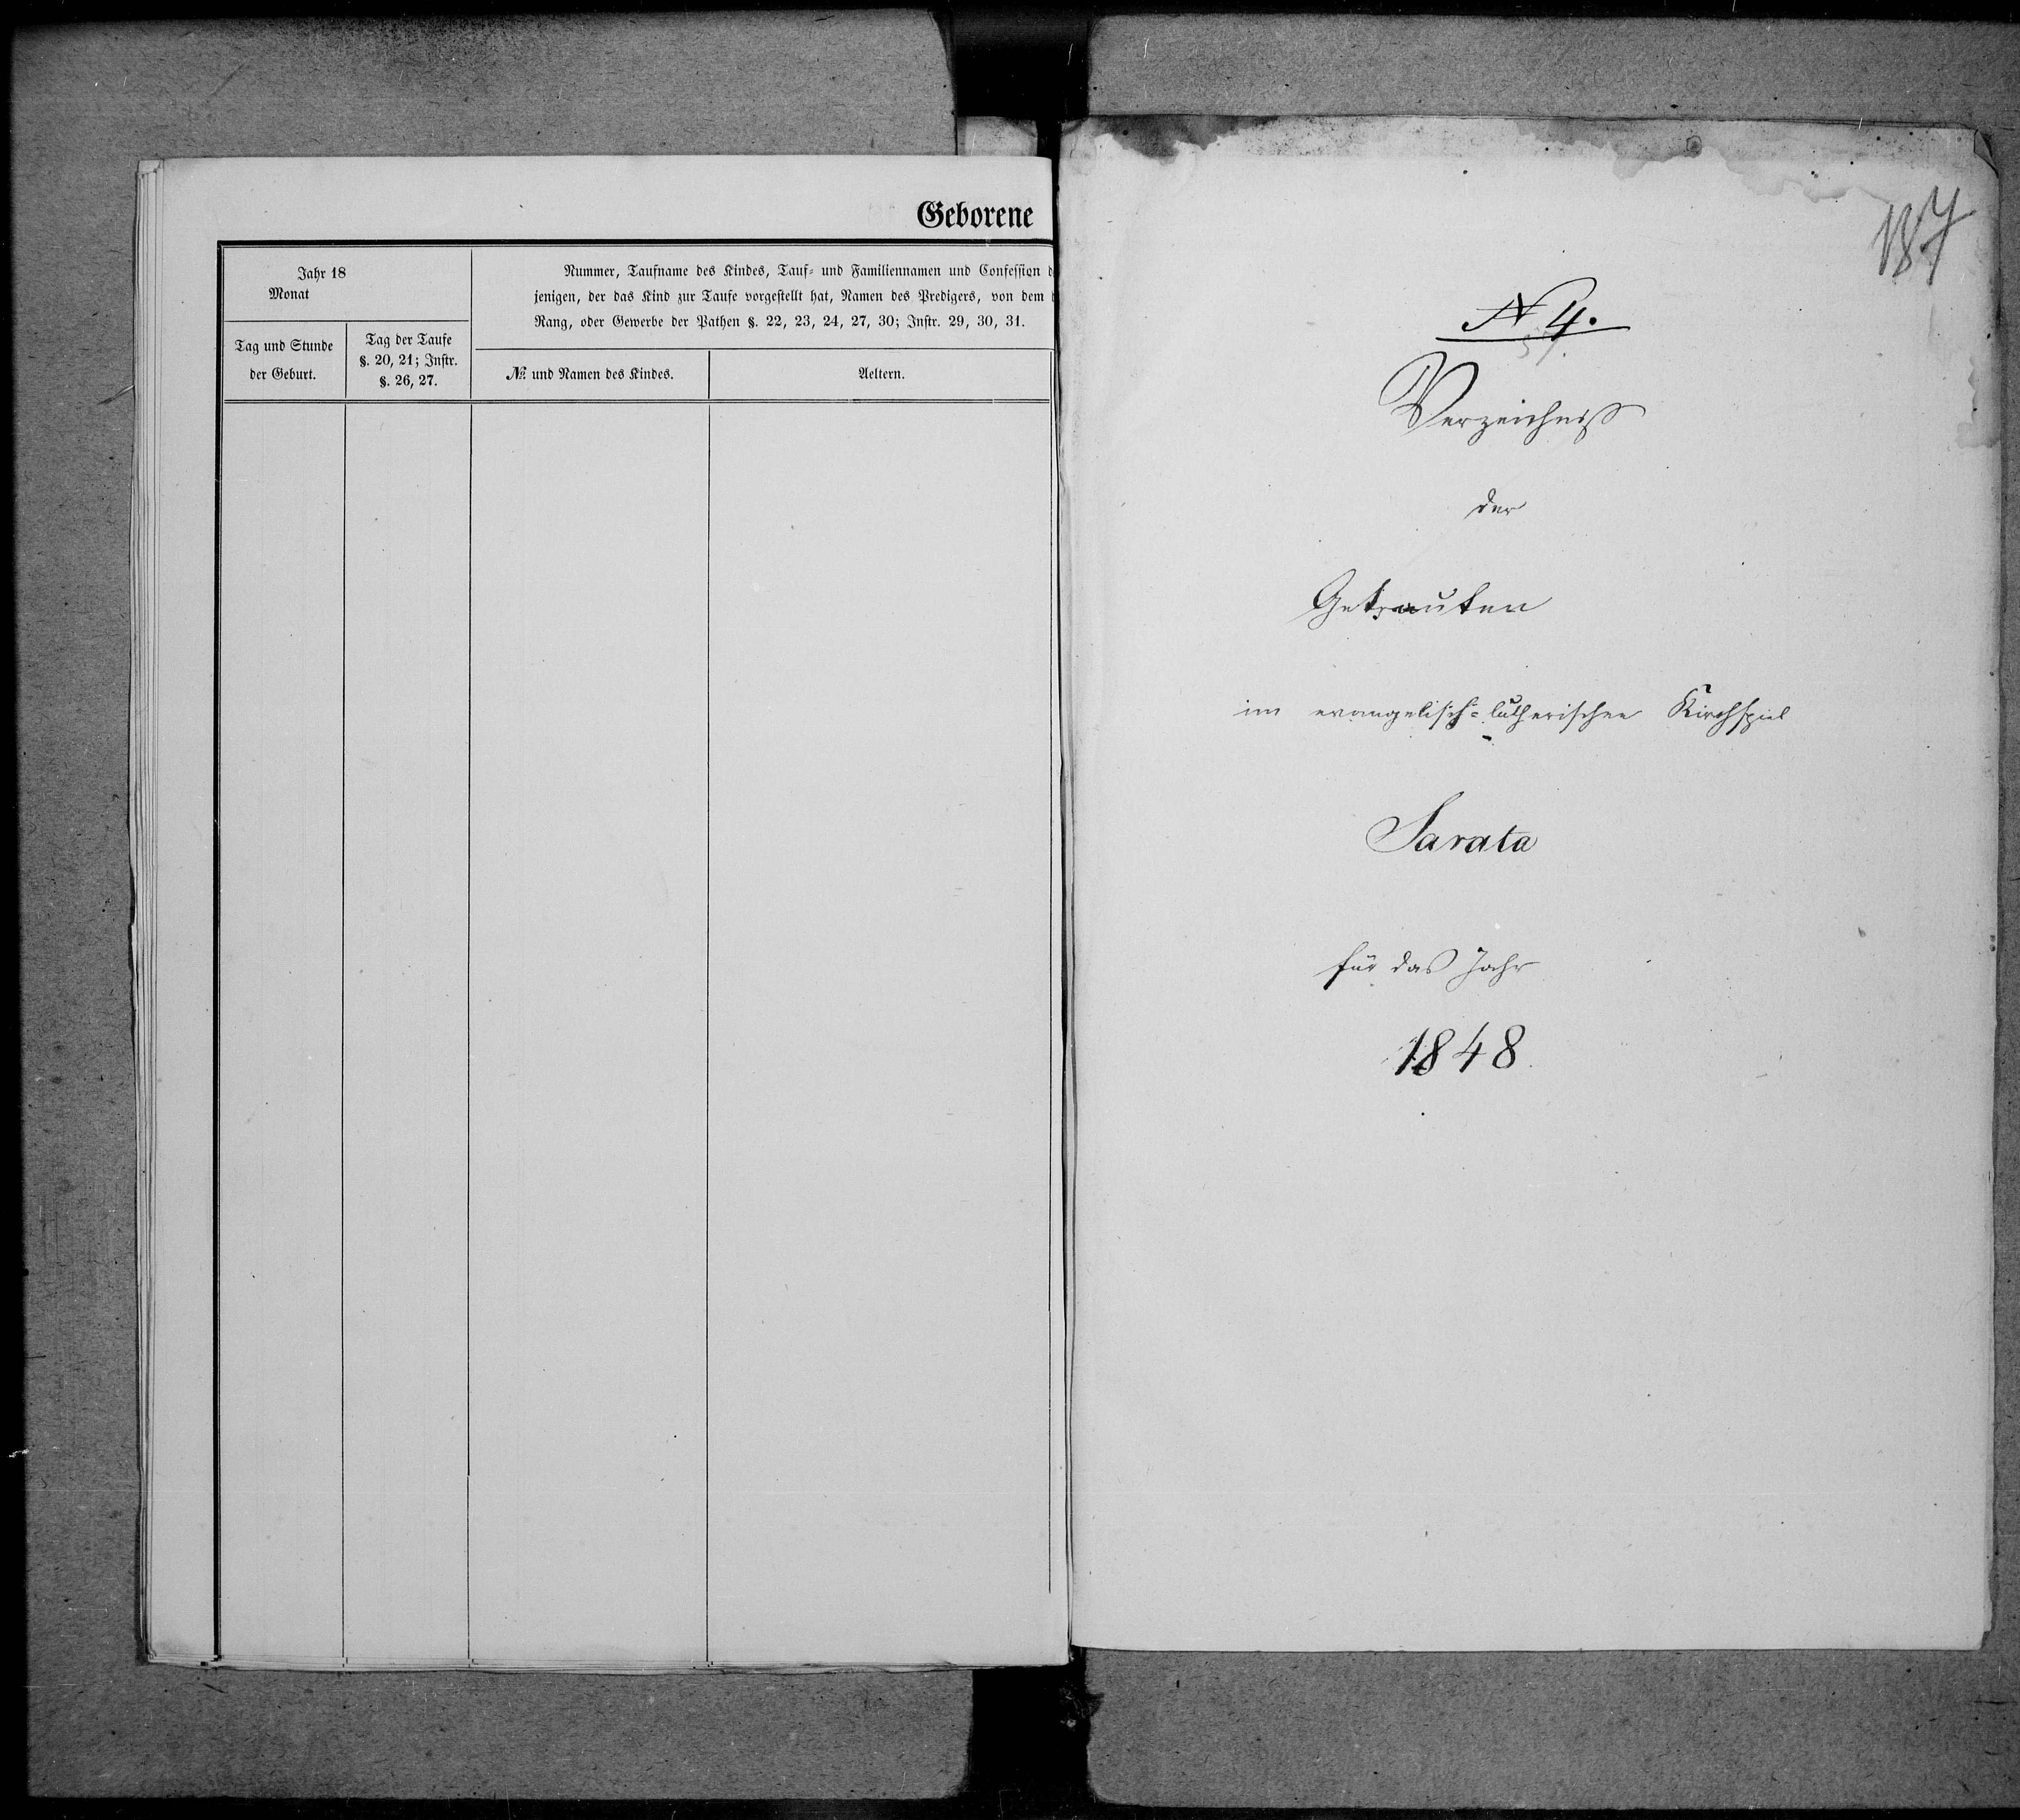 Geborene
Jahr 18
Monat
Tag und Stunde
der Geburt.
Tag der Taufe
§. 20, 21; Instr.
§. 26, 27.
Nummer, Taufname des Kindes, Tauf- und Familiennamen und Confession
jenigen, der das Kind zur Taufe vorgestellt hat, Namen des Predigers, von dem
Rang, oder Gewerbe der Pathen §. 22, 23, 24, 27, 30; Instr. 29, 30, 31.
№ und Namen des Kindes.
Aeltern.
187
N 4.
Verzeichniß
der
Getrauten
im evangelisch-lutherischen Kirchspiel
Sarata
für das Jahr
1848.